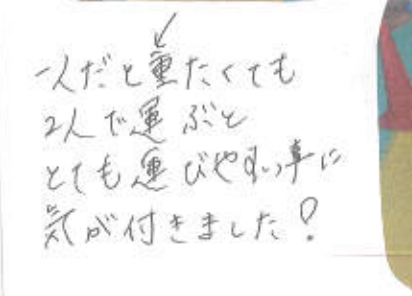 一人だと重たくても
2人で運ぶと
とても運びやすい事に
気が付きました!